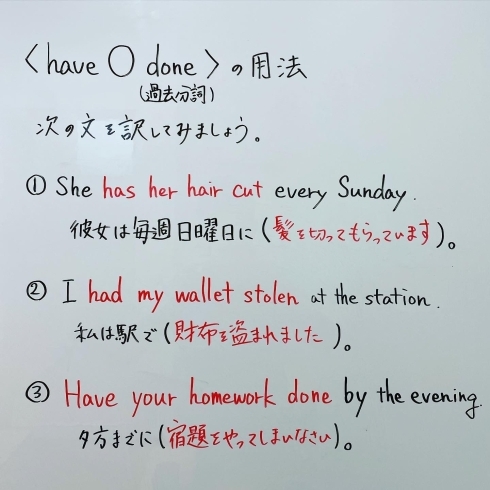 〈have O done〉の用法
(過去分詞)
次の文を訳してみましょう。
① She has her hair cut every Sunday.
彼女は毎週日曜日に(髪を切ってもらっています)。
② I had my wallet stolen at the station.
私は駅で(財布を盗まれました)。
③ Have your homework done by the evening.
夕方までに(宿題をやってしまいなさい)。